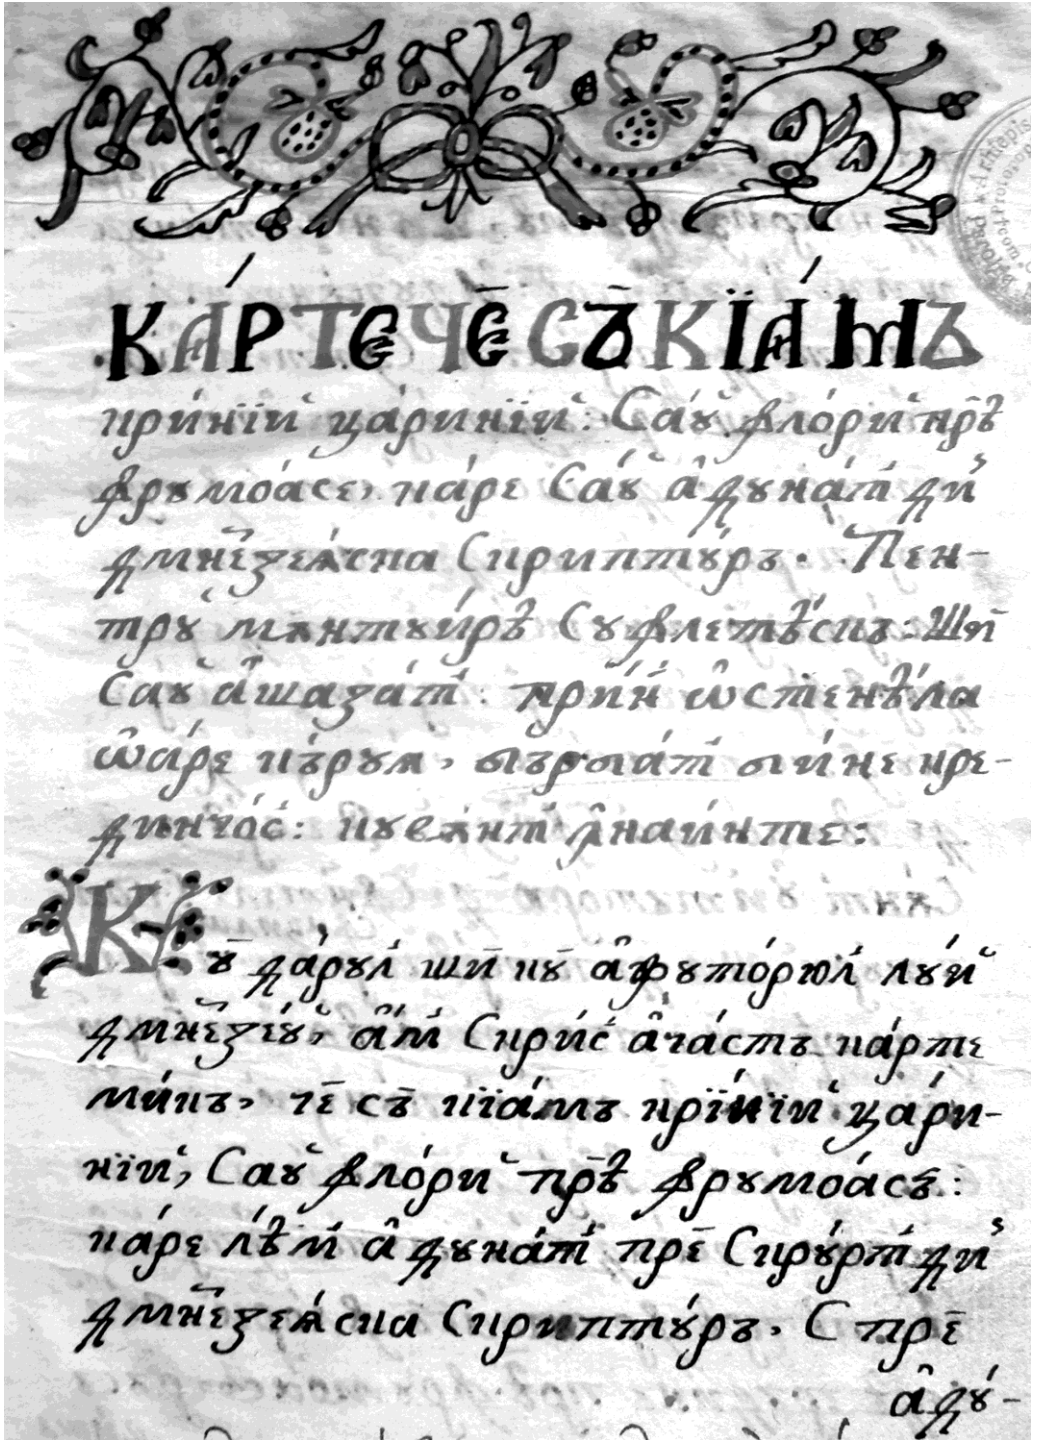 КА́РТЕ ЧЕ̄ СЪ̄ КЇА́МЪ
кри́нїй ца́ринїй: Сау҆ фло́рй прѣ̄
фрꙋмоа́се, ка́ре Сау҆ а҆дꙋна́т ди́н
дмн҃еꙁеꙗ́ска Скриптꙋ́ръ. Пен-
трꙋ҆ мѫнтꙋи́рѣ Сꙋфлетѣ́скъ: Шѝ
Сау҆ а҆шаꙁа́т: при́н ѡ҆стенѣ́ла
ѡ҆а́ре къ́рꙋѧ, бъ́рба́т би́не кре-
динчо́с: кꙋвѫ́нт ꙟ҆наи́нте:
Кꙋ̄ да́рꙋл шѝ кꙋ̄ а҆фꙋто́рюл лꙋ́й
дмн҃еꙁе́ꙋ, а҆́м Скри́с а҆ча́стъ ка́рте
ми́къ, че̄ съ̄ кїа́мъ крі́нїй ца́ри-
нїй, Сау҆ фло́рй прѣ̄ фрꙋмоа́съ:
ка́ре лѣ́м а҆дꙋна́т пре̄ Скꙋ́рт ди́н
дмн҃еꙁеꙗ́ска Скриптꙋ́ръ. С пре̄
а҆дꙋ́-